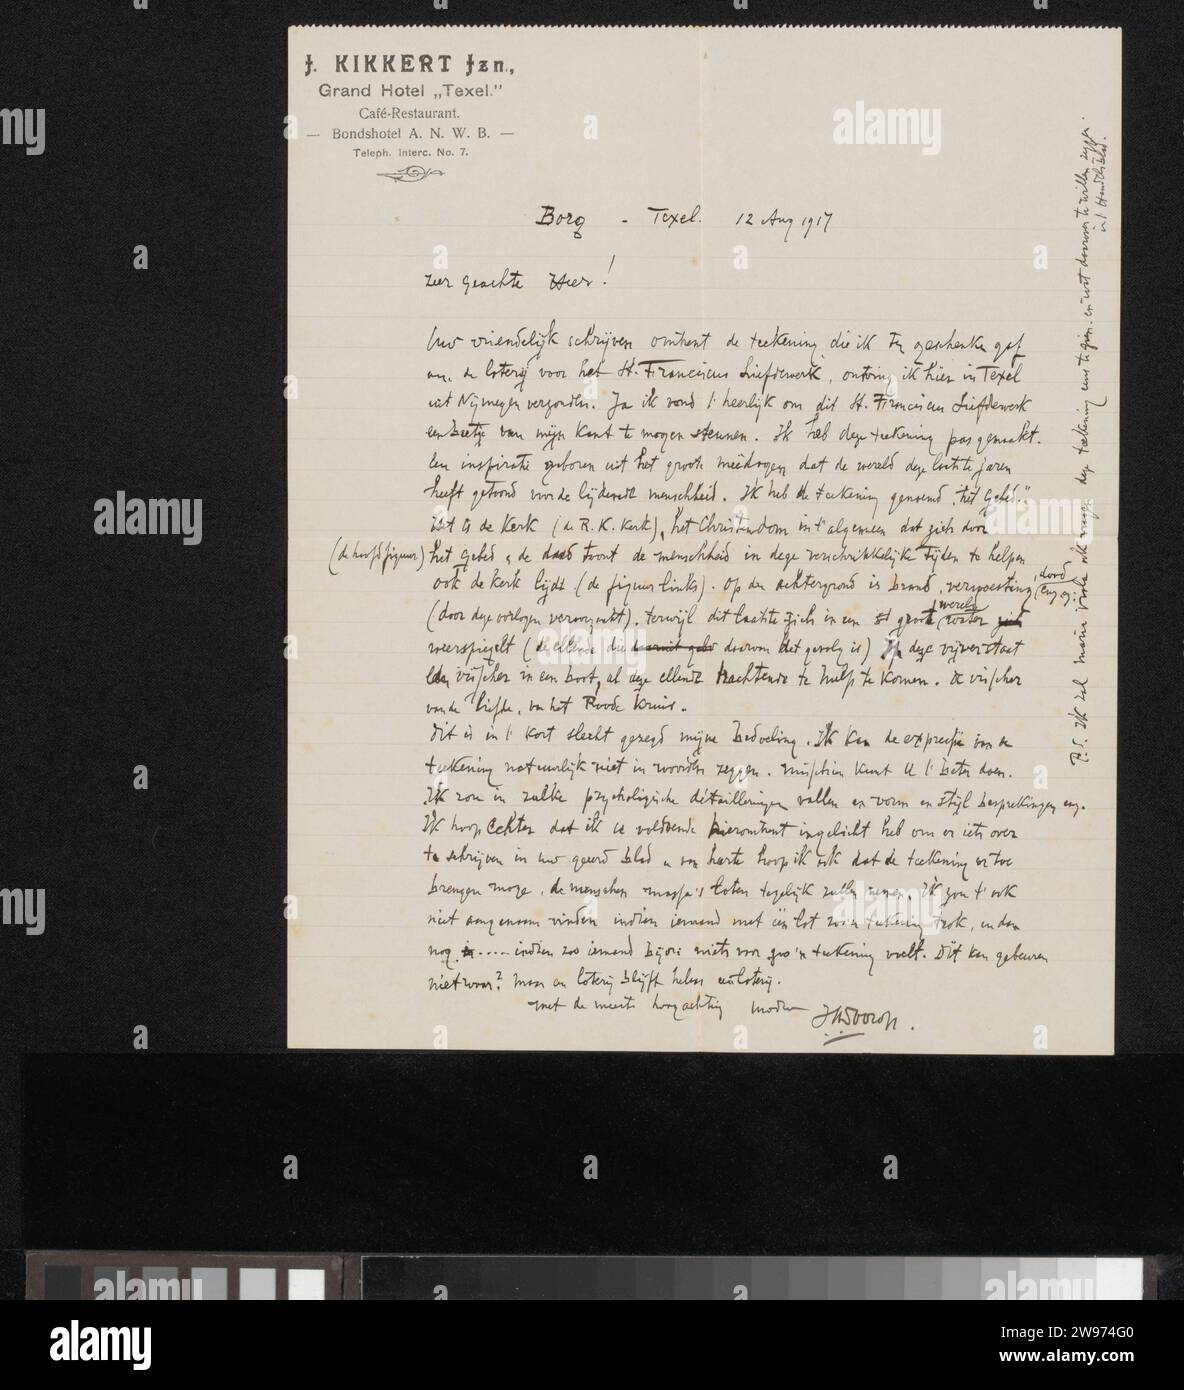 J. KIKKERT Jzn.,
Grand Hotel „Texel."
Café-Restaurant.
— Bondshotel A. N. W. B. —
Teleph. Interc. No. 7.
Borg - Texel. 12 Aug 1917
zeer geachte Heer!
Uw vriendelijk schrijven omtrent de teekening, die ik ten geschenke gaf
aan de loterij voor het St. Franciscus Liefdewerk, ontving ik hier in Texel
uit Nijmegen verzonden. Ja ik vond 't heerlijk om dit St. Franciscus Liefdewerk
een beetje van mijn kant te mogen steunen. Ik heb deze teekening pas gemaakt.
Een inspiratie geboren uit het groote meedoogen dat de wereld deze laatste jaren
heeft getoond voor de lijdende menschheid. Ik heb de teekening genoemd „het Gebed."
Het is de Kerk (de R.K. Kerk), het Christendom in 't algemeen dat zich door
(de hoofdfiguur) het gebed en de daad toont de menschheid in deze verschrikkelijke tijden te helpen
ook de Kerk lijdt (de figuur links). Op den achtergrond is brand, verwoesting, dood enz.
(door deze oorlogen veroorzaakt). terwijl dit laatste zich in een groot (wereld) water
weerspiegelt (de ellende die daarvan het gevolg is) Op deze vijver staat
een visscher in een boot, al deze ellende trachtende te hulp te komen. De visscher
van de liefde, van het Roode Kruis.
Dit is in 't kort slecht gezegd mijne bedoeling. Ik kan de expressie van de
teekening natuurlijk niet in woorden zeggen. misschien kunt U 't beter doen.
Ik zou in zulke psychologische détailleeringen vallen en vorm en stijl besprekingen enz.
Ik hoop echter dat ik U voldoende hieromtrent ingelicht heb om er iets over
te schrijven in uw geeerd blad en van harte hoop ik ook dat de teekening er toe
brengen moge, de menschen massa's loten tegelijk zullen nemen. Ik zou 't ook
niet aangenaam vinden indien iemand met één lot zoo'n teekening trok, en dan
nog ..... indien zoo iemand bijv. niets voor zoo'n teekening voelt. Dit kan gebeuren
niet waar? Maar een loterij blijft helaas een loterij.
met de meeste hoogachting
JThToorop.
P.S. Ik zal mijn ook vragen deze teekening eens te zien en wat daarover te willen zeggen
in 't Handelsblad.
alamy
a
2W974G0
www.alamy.com